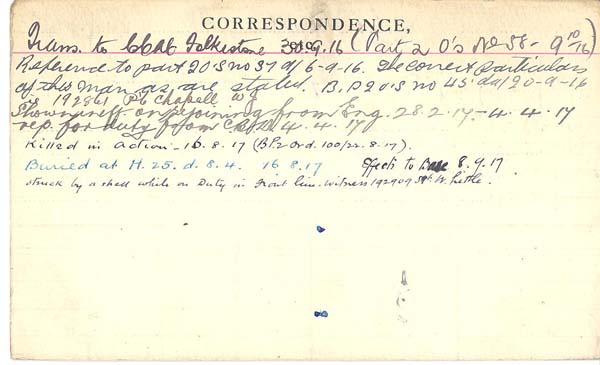 CORRESPONDENCE,
Trans. to CCAC Folkestone 30.9.16 (Part 2 O's No 58 - 9/10/16)
Reference to part 2 O.S no 37 d/ 6-9-16. The correct particulars
of this man are as stated. B.P 2 O.S no 45 dd/ 20-9-16
192861 Pte Chapell W J
Shown on rejoining from Eng. 28.2.17 - 4.4.17
rep. for duty from 4.4.17
Killed in Action - 16.8.17 (BP2 Ord. 100/22.8.17).
Buried at H.25.d.8.4. 16.8.17 Effects to Base 8.9.17
struck by a shell while on Duty in Front line. Witness 192909 Sgt. W. Little.